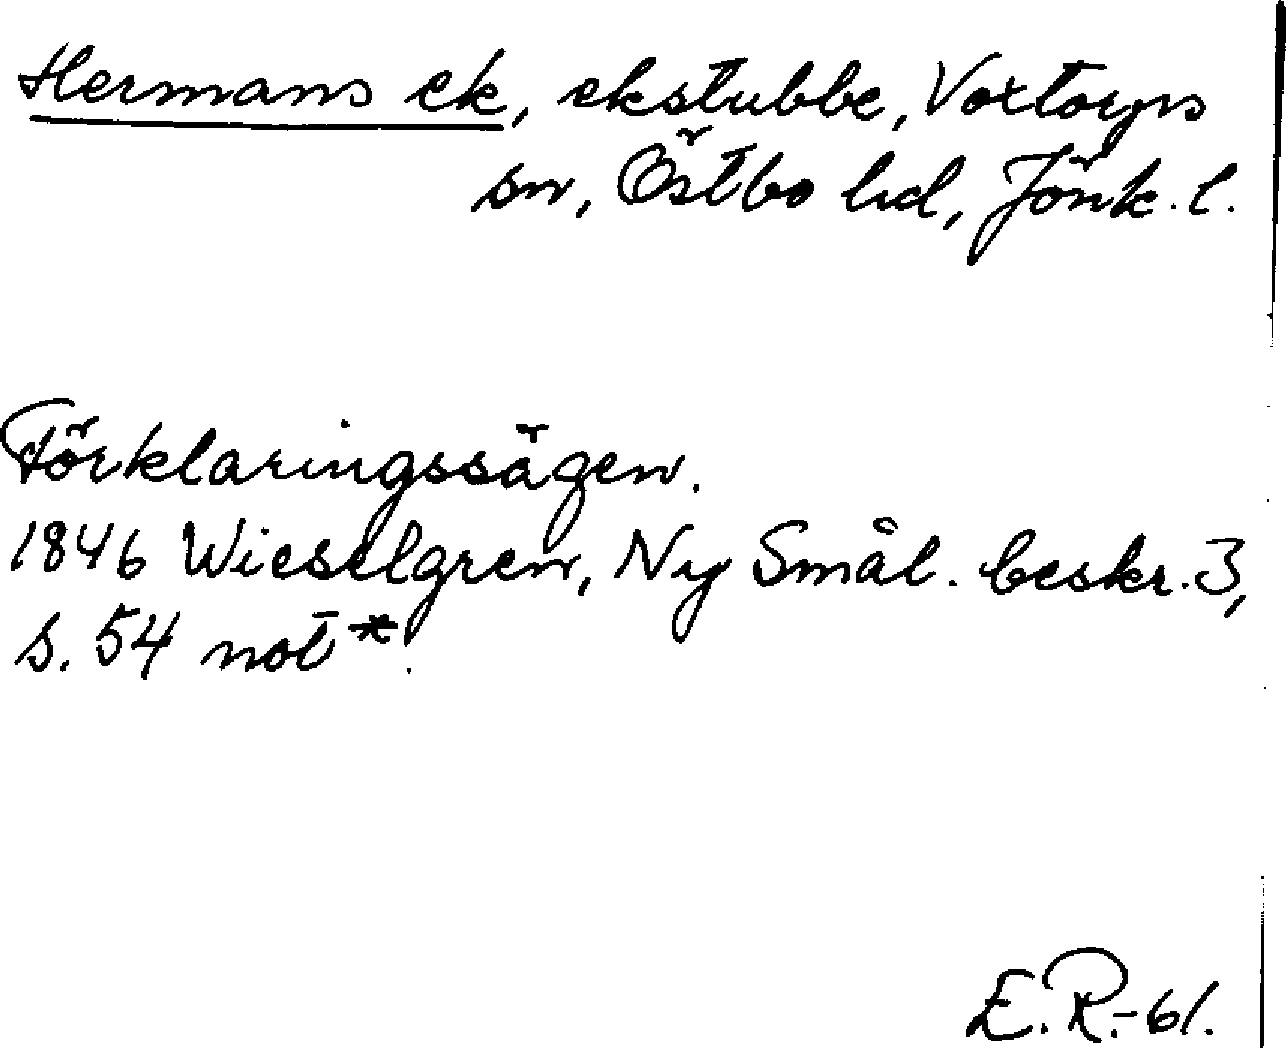 Hermans ek, ekstubbe, Voxtorps
sn, Östbo hd, Jönk. l.
Förklaringssägen.
1846 Wieselgren, Ny Smål. beskr. 3,
s. 54 not *.
E.R.-61.